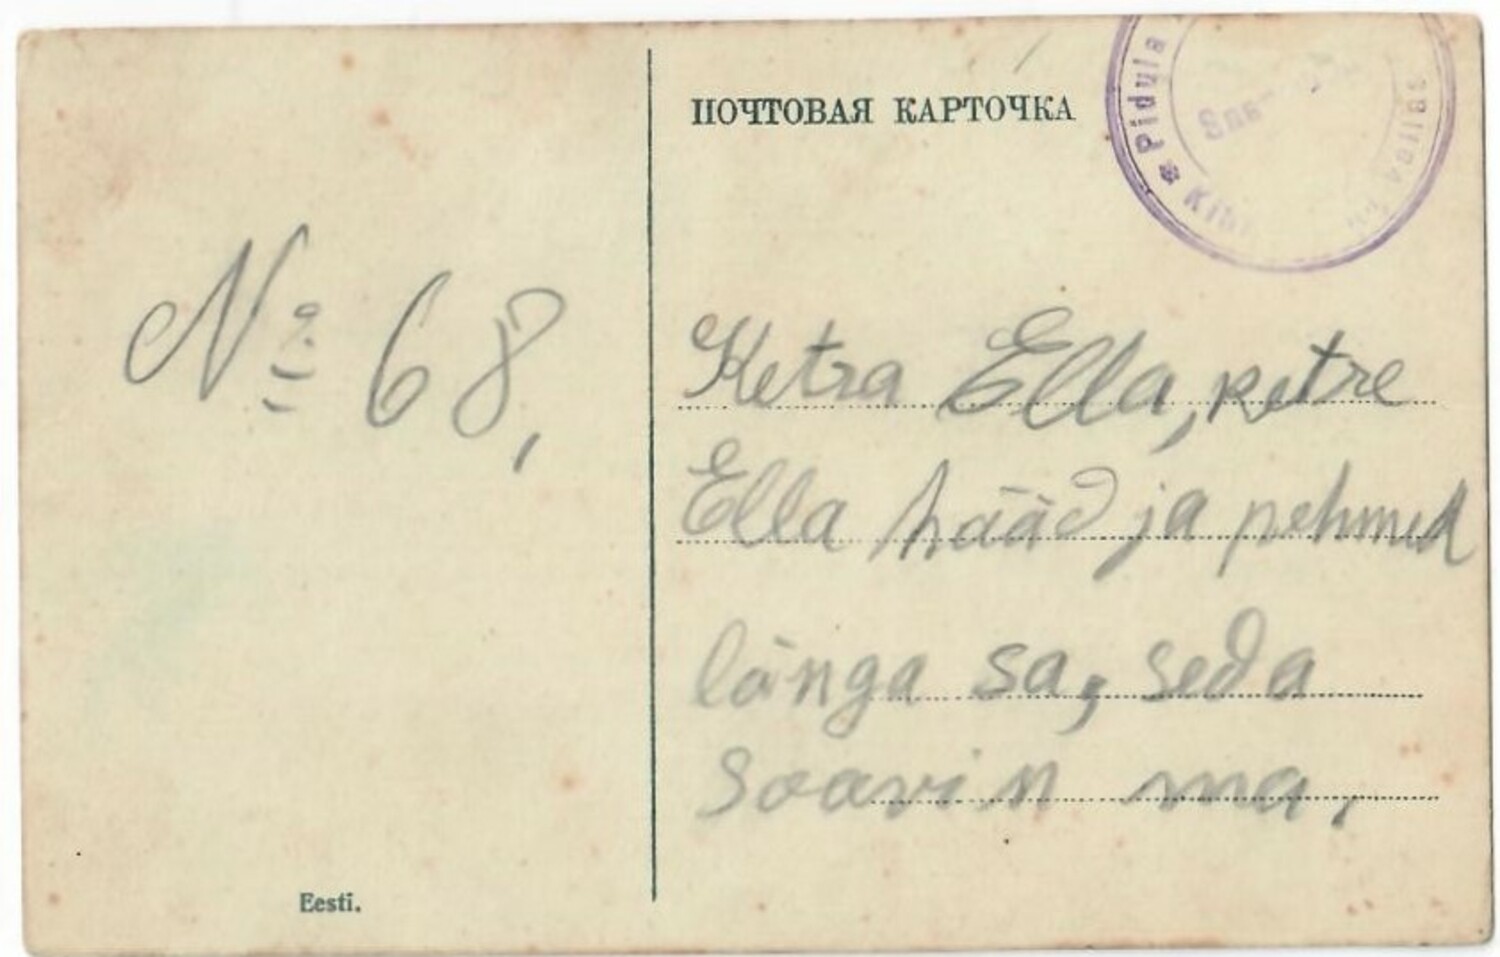 ПОЧТОВАЯ КАРТОЧКА
Pidula
Nº 68,
Ketra Ella, ketre
Ella hääd ja pehmed
lõnga sa, seda
soovin ma.
Eesti.